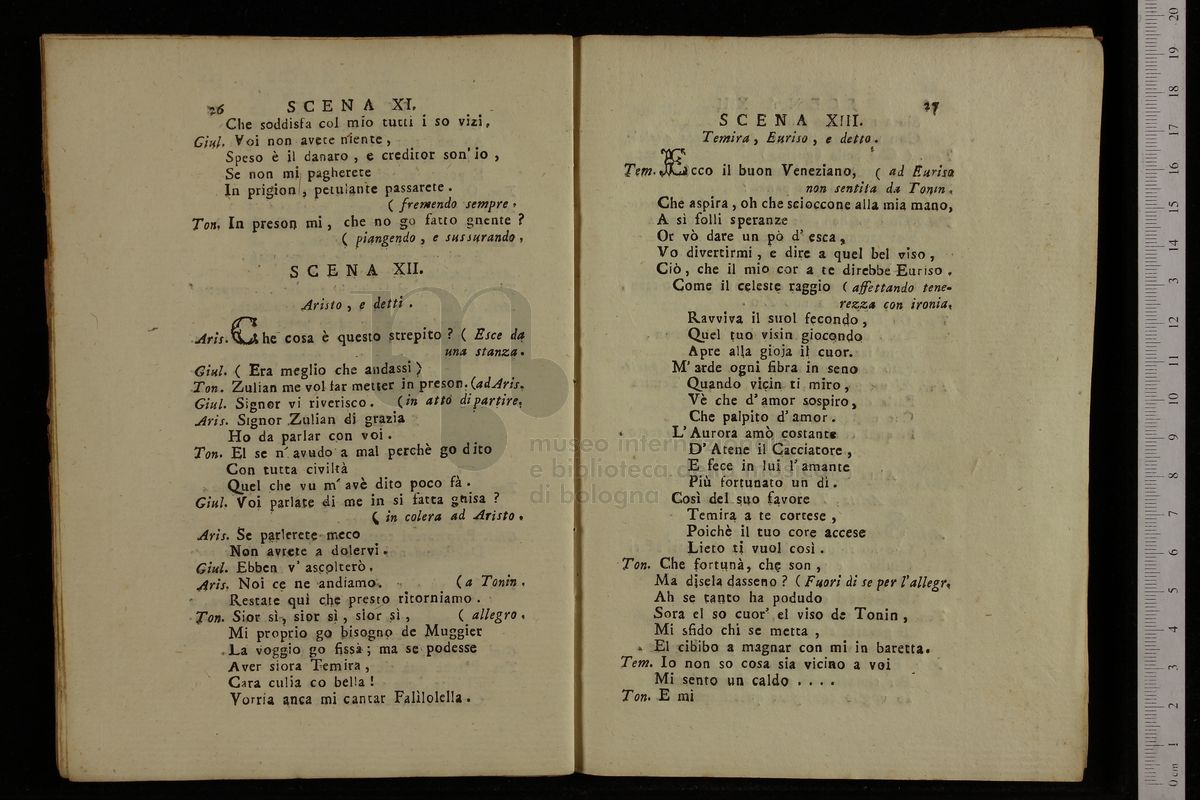 26 SCENA XI.
Che soddisfa col mio tutti i so vizi.
Giul. Voi non avete niente,
Speso è il danaro, e creditor son' io,
Se non mi pagherete
In prigion, petulante passarete.
( fremendo sempre.
Ton. In preson mi, che no go fatto gnente?
( piangendo, e sussurando,
SCENA XII.
Aristo, e detti.
Aris. Che cosa è questo strepito? ( Esce da
una stanza.
Giul. ( Era meglio che andassi )
Ton. Zulian me vol far metter in preson. (ad Aris.
Giul. Signor vi riverisco. (in atto di partire.
Aris. Signor Zulian di grazia
Ho da parlar con voi.
Ton. El se n' avudo a mal perchè go dito
Con tutta civiltà
Quel che vu m' avè dito poco fà.
Giul. Voi parlate di me in si fatta guisa?
( in colera ad Aristo.
Aris. Se parlerete meco
Non avrete a dolervi.
Giul. Ebben v' ascolterò.
Aris. Noi ce ne andiamo. (a Tonin.
Restate quì che presto ritorniamo.
Ton. Sior sì, sior sì, sior sì, ( allegro.
Mi proprio go bisogno de Muggier
La voggio go fissà; ma se podesse
Aver siora Temira,
Cara culia co bella!
Vorria anca mi cantar Falilolella.
27
SCENA XIII.
Temira, Euriso, e detto.
Tem. Ecco il buon Veneziano, ( ad Euriso
non sentita da Tonin.
Che aspira, oh che scioccone alla mia mano,
A sì folli speranze
Or vò dare un pò d' esca,
Vo divertirmi, e dire a quel bel viso,
Ciò, che il mio cor a te direbbe Euriso.
Come il celeste raggio ( affettando tene-
rezza con ironia.
Ravviva il suol fecondo,
Quel tuo visin giocondo
Apre alla gioja il cuor.
M' arde ogni fibra in seno
Quando vicin ti miro,
Vè che d' amor sospiro,
Che palpito d' amor.
L' Aurora amò costante
D' Atene il Cacciatore,
E fece in lui l' amante
Più fortunato un dì.
Così del suo favore
Temira a te cortese,
Poichè il tuo core accese
Lieto ti vuol così.
Ton. Che fortunà, che son,
Ma disela dasseno? ( Fuori di se per l'allegr.
Ah se tanto ha podudo
Sora el so cuor' el viso de Tonin,
Mi sfido chi se metta,
El cibibo a magnar con mi in baretta.
Tem. Io non so cosa sia vicino a voi
Mi sento un caldo ....
Ton. E mi
museo internazionale
e biblioteca della musica
di bologna
20
19
18
17
16
15
14
13
12
11
10
9
8
7
6
5
4
3
2
1
0 cm